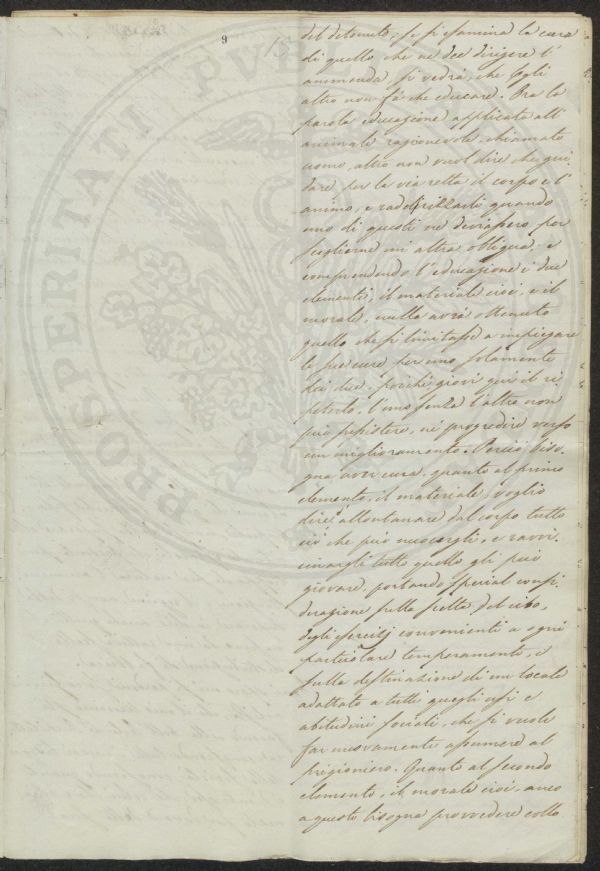 9
15
del detenuto; se si esamina la cura
di quello, che ne dee dirigere l'
ammenda si vedrà, che egli
altro non fà che educare. Ora la
parola educazione applicata all'
animale ragionevole, chiamato
uomo, altro non vuol dire che gui
dare per la via retta il corpo e l'
animo, e raddrizzarli quando
uno di questi ne deviassero per
sceglierne un altra obliqua; e
comprendendo l'educazione i due
elementi, il materiale cioè, e il
morale, nulla avrà ottenuto
quello che si limitasse a impiegare
le sue cure per uno solamente
dei due, poiché giovi qui il ri
peterlo, l'uno senza l'altro non
può sussistere, né progredire verso
un miglioramento. Perciò biso-
gna aver cura, quanto al primo
elemento, il materiale, voglio
dire, allontanare dal corpo tutto
ciò che può nuocergli, e ravvi
cinargli tutto quello gli può
giovare, portando special consi
derazione sulla scelta del cibo,
degli esercizj convenienti a ogni
particolare temperamento, e
sulla destinazione di un locale
adattato a tutti quegli usi e
abitudini sociali, che si vuole
far nuovamente assumere al
prigioniero. Quanto al secondo
elemento, il morale cioè, anco
a questo bisogna provvedere collo
PROSPERITATI PUB